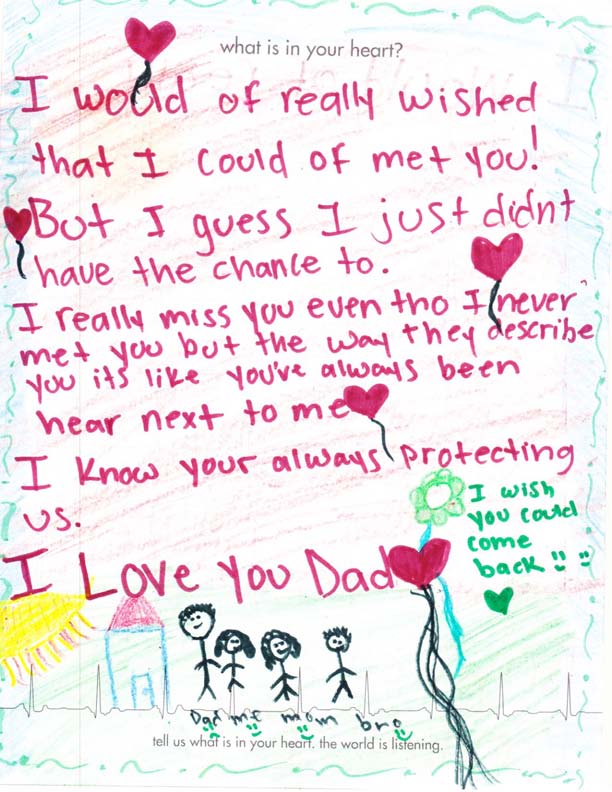 what is in your heart?
I would of really wished
that I could of met you!
But I guess I just didnt
have the chance to.
I really miss you even tho I never
met you but the way they describe
you its like you've always been
hear next to me
I know your always protecting
us.
I wish
you could
come
back
I Love You Dad
Dad me mom bro
tell us what is in your heart. the world is listening.